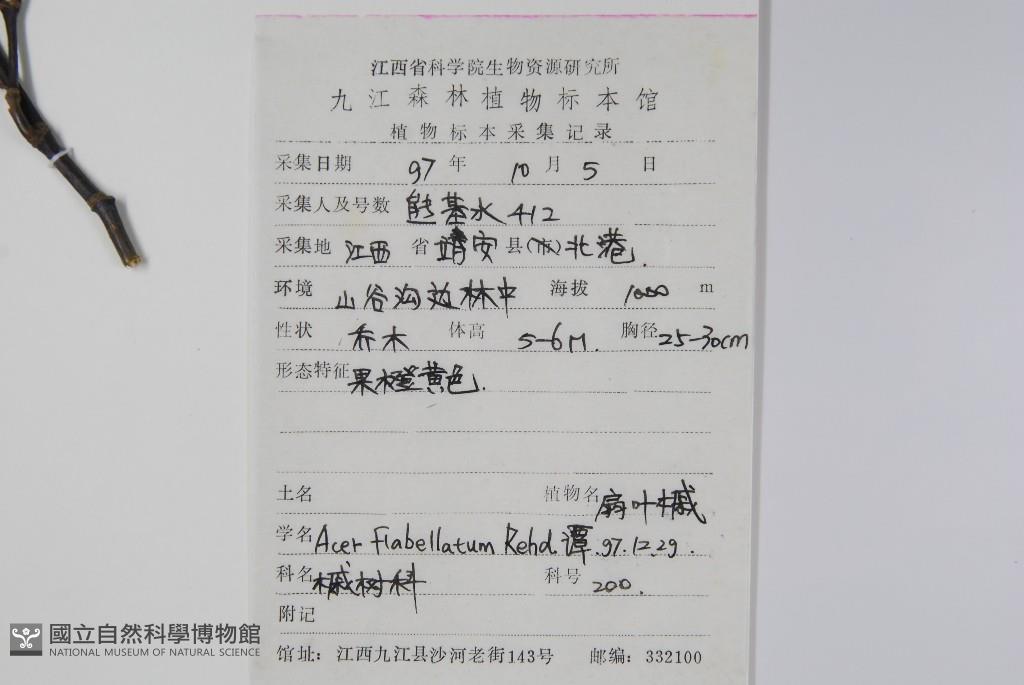 江西省科学院生物资源研究所
九江森林植物标本馆
植物标本采集记录
采集日期 97 年 10 月 5 日
采集人及号数 熊基水 412
采集地 江西 省 靖安 县(市) 北港.
环境 山谷沟边林中 海拔 1000 m
性状 乔木 体高 5-6M. 胸径 25-30cm
形态特征 果橙黄色.
土名 植物名 扇叶槭
学名 Acer flabellatum Rehd. 谭.97.12.29.
科名 槭树科 科号 200.
附记
馆址: 江西九江县沙河老街143号 邮编: 332100
國立自然科學博物館
NATIONAL MUSEUM OF NATURAL SCIENCE